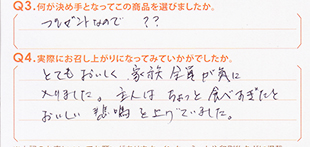 Q3.何が決め手となってこの商品を選びましたか。
プレゼントなので ??
Q4.実際にお召し上がりになってみていかがでしたか。
とてもおいしく 家族全員が気に
入りました。主人はちょっと食べすぎたと
おいしい悲鳴を上げていました。